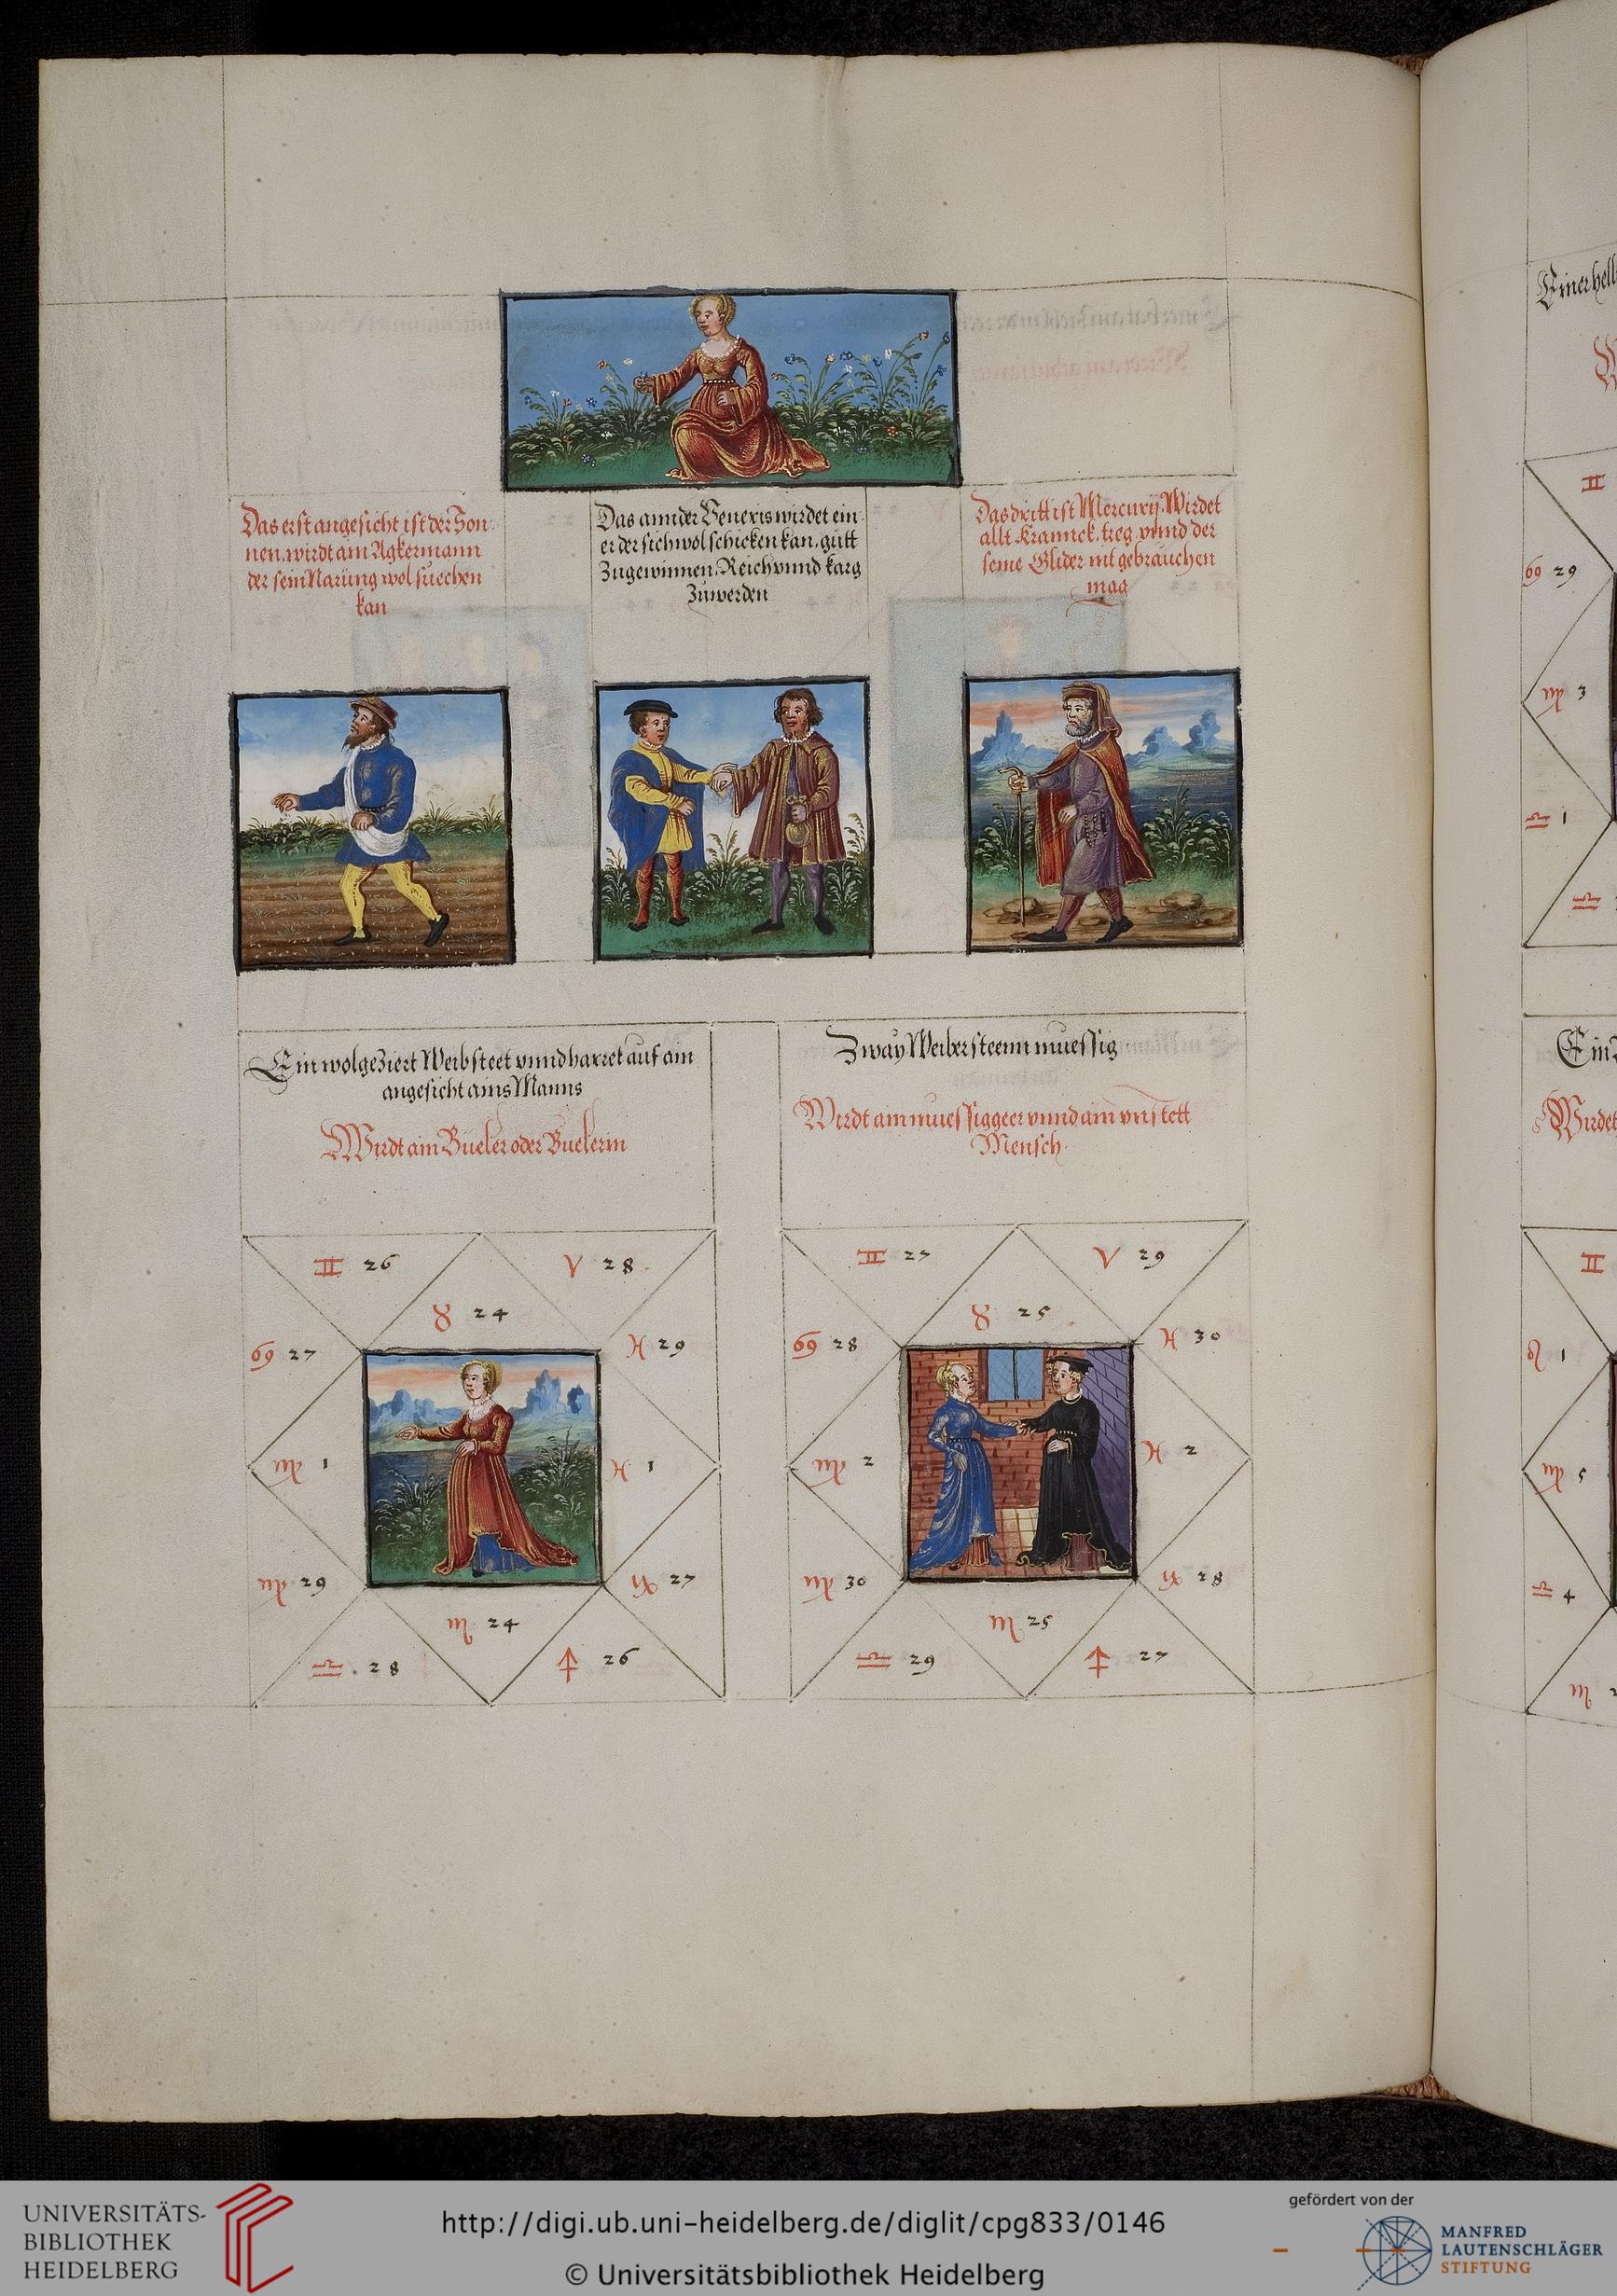 Das erst angesicht ist der Son-
nen. wirdt ain Agkermann
der sein Narung wol suechen
kan
Das annder Veneris wirdet ein
er der sich wol schicken kan. gutt
Zugewinnen. Reich vnnd karg
Zuwerden
Das dritt ist Mercurij. Wirdet
allt Krannck. treg. vnnd der
seine Glider nit gebrauchen
mag
Ein wolgeziert Weib steet vnnd harret auf ain
angesicht ains Manns
Wirdt ain Bueler oder Buelerin
♊ 26
♈ 28
♉ 24
♋ 27
♓ 29
♍ 1
♓ 1
♍ 29
♑ 27
♏ 24
♎ 28
♐ 26
Zway Weiber steenn muessig
Wirdt ain muessiggeer vnnd ain vnstett
Mensch
♊ 27
♈ 29
♉ 25
♋ 28
♓ 30
♍ 2
♓ 2
♍ 30
♑ 28
♏ 25
♎ 29
♐ 27
♊
♋ 29
♍ 3
♎ 1
♎
♊
♌ 1
♍ 5
♎ 4
♏
UNIVERSITÄTS-
BIBLIOTHEK
HEIDELBERG
http://digi.ub.uni-heidelberg.de/diglit/cpg833/0146
© Universitätsbibliothek Heidelberg
gefördert von der
MANFRED
LAUTENSCHLÄGER
STIFTUNG